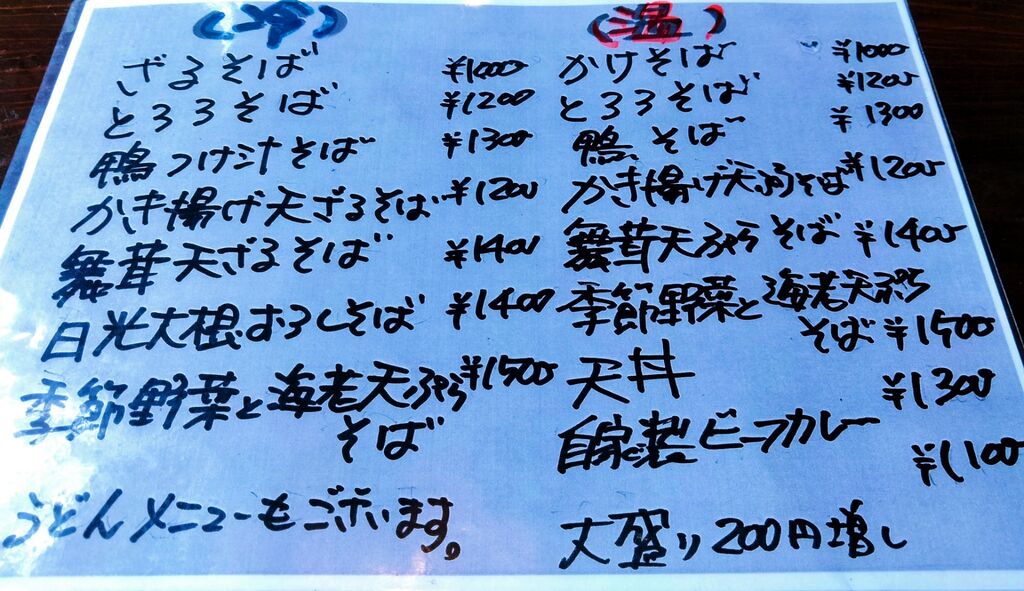 (冷)
ざるそば ¥1000
とろろそば ¥1200
鴨つけ汁そば ¥1300
かき揚げ天ざるそば ¥1200
舞茸天ざるそば ¥1400
日光大根おろしそば ¥1400
季節野菜と海老天ぷら ¥1500
そば
うどんメニューもございます。
(温)
かけそば ¥1000
とろろそば ¥1200
鴨そば ¥1300
かき揚げ天ぷらそば ¥1200
舞茸天ぷらそば ¥1400
季節野菜と海老天ぷら
そば ¥1500
天丼 ¥1300
自家製ビーフカレー ¥1100
大盛り200円増し